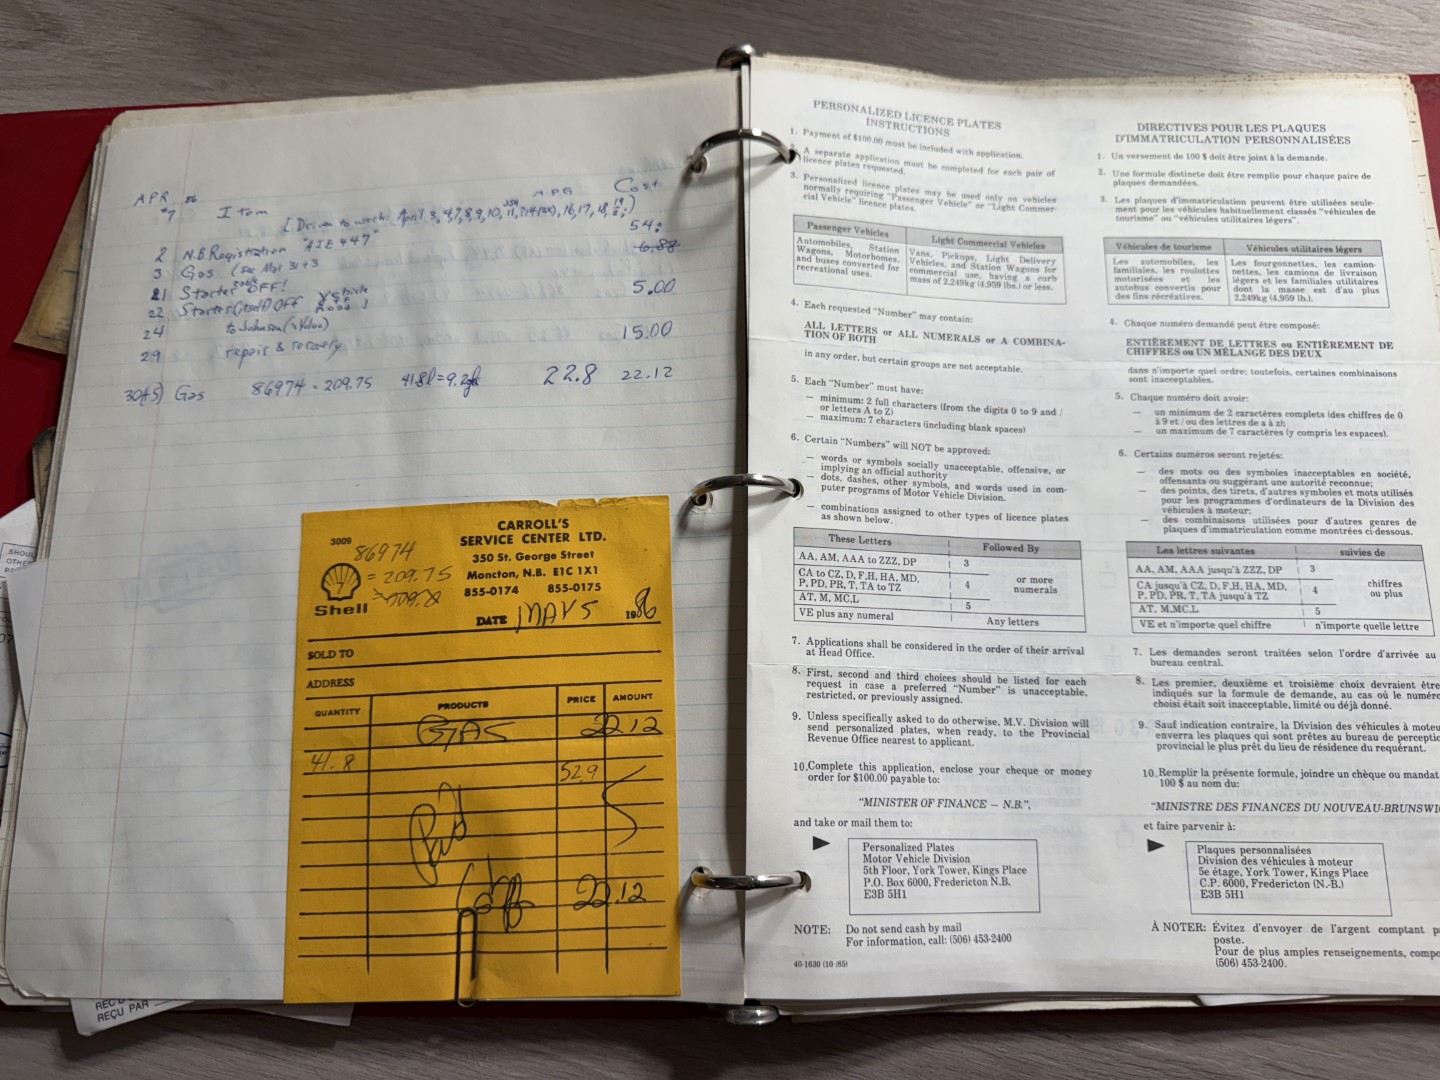 APR 86
#7 Item MPG Cost
[Driven to work: April 3,4,7,8,9,10,11,
2 N.B. Registration "AIE 447" 54:
3 Gas (see Mar 31+3 6.88
21 Starter OFF!
22 Starter (itself) Off
24 to Johnson (Volvo) 5.00
29 repair & recovery 15.00
30(+5) Gas 86974 = 209.75 41.8l = 9.2g 22.8 22.12
3009
86974
= 209.75
Shell
CARROLL'S
SERVICE CENTER LTD.
350 St. George Street
Moncton, N.B. E1C 1X1
855-0174 855-0175
DATE MAY 5 1986
SOLD TO
ADDRESS
QUANTITY PRODUCTS PRICE AMOUNT
GAS 22.12
41.8 52.9
Paid
22.12
SHOU
OTHE
REÇU PAR
PERSONALIZED LICENCE PLATES
INSTRUCTIONS
1. Payment of $100.00 must be included with application.
2. A separate application must be completed for each pair of
licence plates requested.
3. Personalized licence plates may be used only on vehicles
normally requiring "Passenger Vehicle" or "Light Commer-
cial Vehicle" licence plates.
Passenger Vehicles Light Commercial Vehicles
Automobiles, Station
Wagons, Motorhomes,
and buses converted for
recreational uses.
Vans, Pickups, Light Delivery
Vehicles, and Station Wagons for
commercial use, having a curb
mass of 2,249kg (4,959 lbs.) or less.
4. Each requested "Number" may contain:
ALL LETTERS or ALL NUMERALS or A COMBINA-
TION OF BOTH
in any order, but certain groups are not acceptable.
5. Each "Number" must have:
— minimum: 2 full characters (from the digits 0 to 9 and /
or letters A to Z)
— maximum: 7 characters (including blank spaces)
6. Certain "Numbers" will NOT be approved:
— words or symbols socially unacceptable, offensive, or
implying an official authority
— dots, dashes, other symbols, and words used in com-
puter programs of Motor Vehicle Division.
— combinations assigned to other types of licence plates
as shown below.
These Letters Followed By
AA, AM, AAA to ZZZ, DP 3
CA to CZ, D, F,H, HA, MD,
P, PD, PR, T, TA to TZ 4
or more
numerals
AT, M, MC,L 5
VE plus any numeral Any letters
7. Applications shall be considered in the order of their arrival
at Head Office.
8. First, second and third choices should be listed for each
request in case a preferred "Number" is unacceptable,
restricted, or previously assigned.
9. Unless specifically asked to do otherwise, M.V. Division will
send personalized plates, when ready, to the Provincial
Revenue Office nearest to applicant.
10. Complete this application, enclose your cheque or money
order for $100.00 payable to:
"MINISTER OF FINANCE – N.B.",
and take or mail them to:
Personalized Plates
Motor Vehicle Division
5th Floor, York Tower, Kings Place
P.O. Box 6000, Fredericton N.B.
E3B 5H1
NOTE: Do not send cash by mail
For information, call: (506) 453-2400
40-1630 (10 /85)
DIRECTIVES POUR LES PLAQUES
D'IMMATRICULATION PERSONNALISÉES
1. Un versement de 100 $ doit être joint à la demande.
2. Une formule distincte doit être remplie pour chaque paire de
plaques demandées.
3. Les plaques d'immatriculation peuvent être utilisées seule-
ment pour les véhicules habituellement classés "véhicules de
tourisme" ou "véhicules utilitaires légers".
Véhicules de tourisme Véhicules utilitaires légers
Les automobiles, les
familiales, les roulottes
motorisées et les
autobus convertis pour
des fins récréatives.
Les fourgonnettes, les camion-
nettes, les camions de livraison
légers et les familiales utilitaires
dont la masse est d'au plus
2,249kg (4,959 lb.).
4. Chaque numéro demandé peut être composé:
ENTIÈREMENT DE LETTRES ou ENTIÈREMENT DE
CHIFFRES ou UN MÉLANGE DES DEUX
dans n'importe quel ordre; toutefois, certaines combinaisons
sont inacceptables.
5. Chaque numéro doit avoir:
— un minimum de 2 caractères complets (des chiffres de 0
à 9 et / ou des lettres de a à z);
— un maximum de 7 caractères (y compris les espaces).
6. Certains numéros seront rejetés:
— des mots ou des symboles inacceptables en société,
offensants ou suggérant une autorité reconnue;
— des points, des tirets, d'autres symboles et mots utilisés
pour les programmes d'ordinateurs de la Division des
véhicules à moteur;
— des combinaisons utilisées pour d'autres genres de
plaques d'immatriculation comme montrées ci-dessous.
Les lettres suivantes suivies de
AA, AM, AAA jusqu'à ZZZ, DP 3
CA jusqu'à CZ, D, F,H, HA, MD,
P, PD, PR, T, TA jusqu'à TZ 4
chiffres
ou plus
AT, M,MC,L 5
VE et n'importe quel chiffre n'importe quelle lettre
7. Les demandes seront traitées selon l'ordre d'arrivée au
bureau central.
8. Les premier, deuxième et troisième choix devraient être
indiqués sur la formule de demande, au cas où le numéro
choisi était soit inacceptable, limité ou déjà donné.
9. Sauf indication contraire, la Division des véhicules à moteu
enverra les plaques qui sont prêtes au bureau de perceptio
provincial le plus prêt du lieu de résidence du requérant.
10. Remplir la présente formule, joindre un chèque ou mandat
100 $ au nom du:
"MINISTRE DES FINANCES DU NOUVEAU-BRUNSWI
et faire parvenir à:
Plaques personnalisées
Division des véhicules à moteur
5e étage, York Tower, Kings Place
C.P. 6000, Fredericton (N.-B.)
E3B 5H1
À NOTER: Évitez d'envoyer de l'argent comptant p
poste.
Pour de plus amples renseignements, compo
(506) 453-2400.